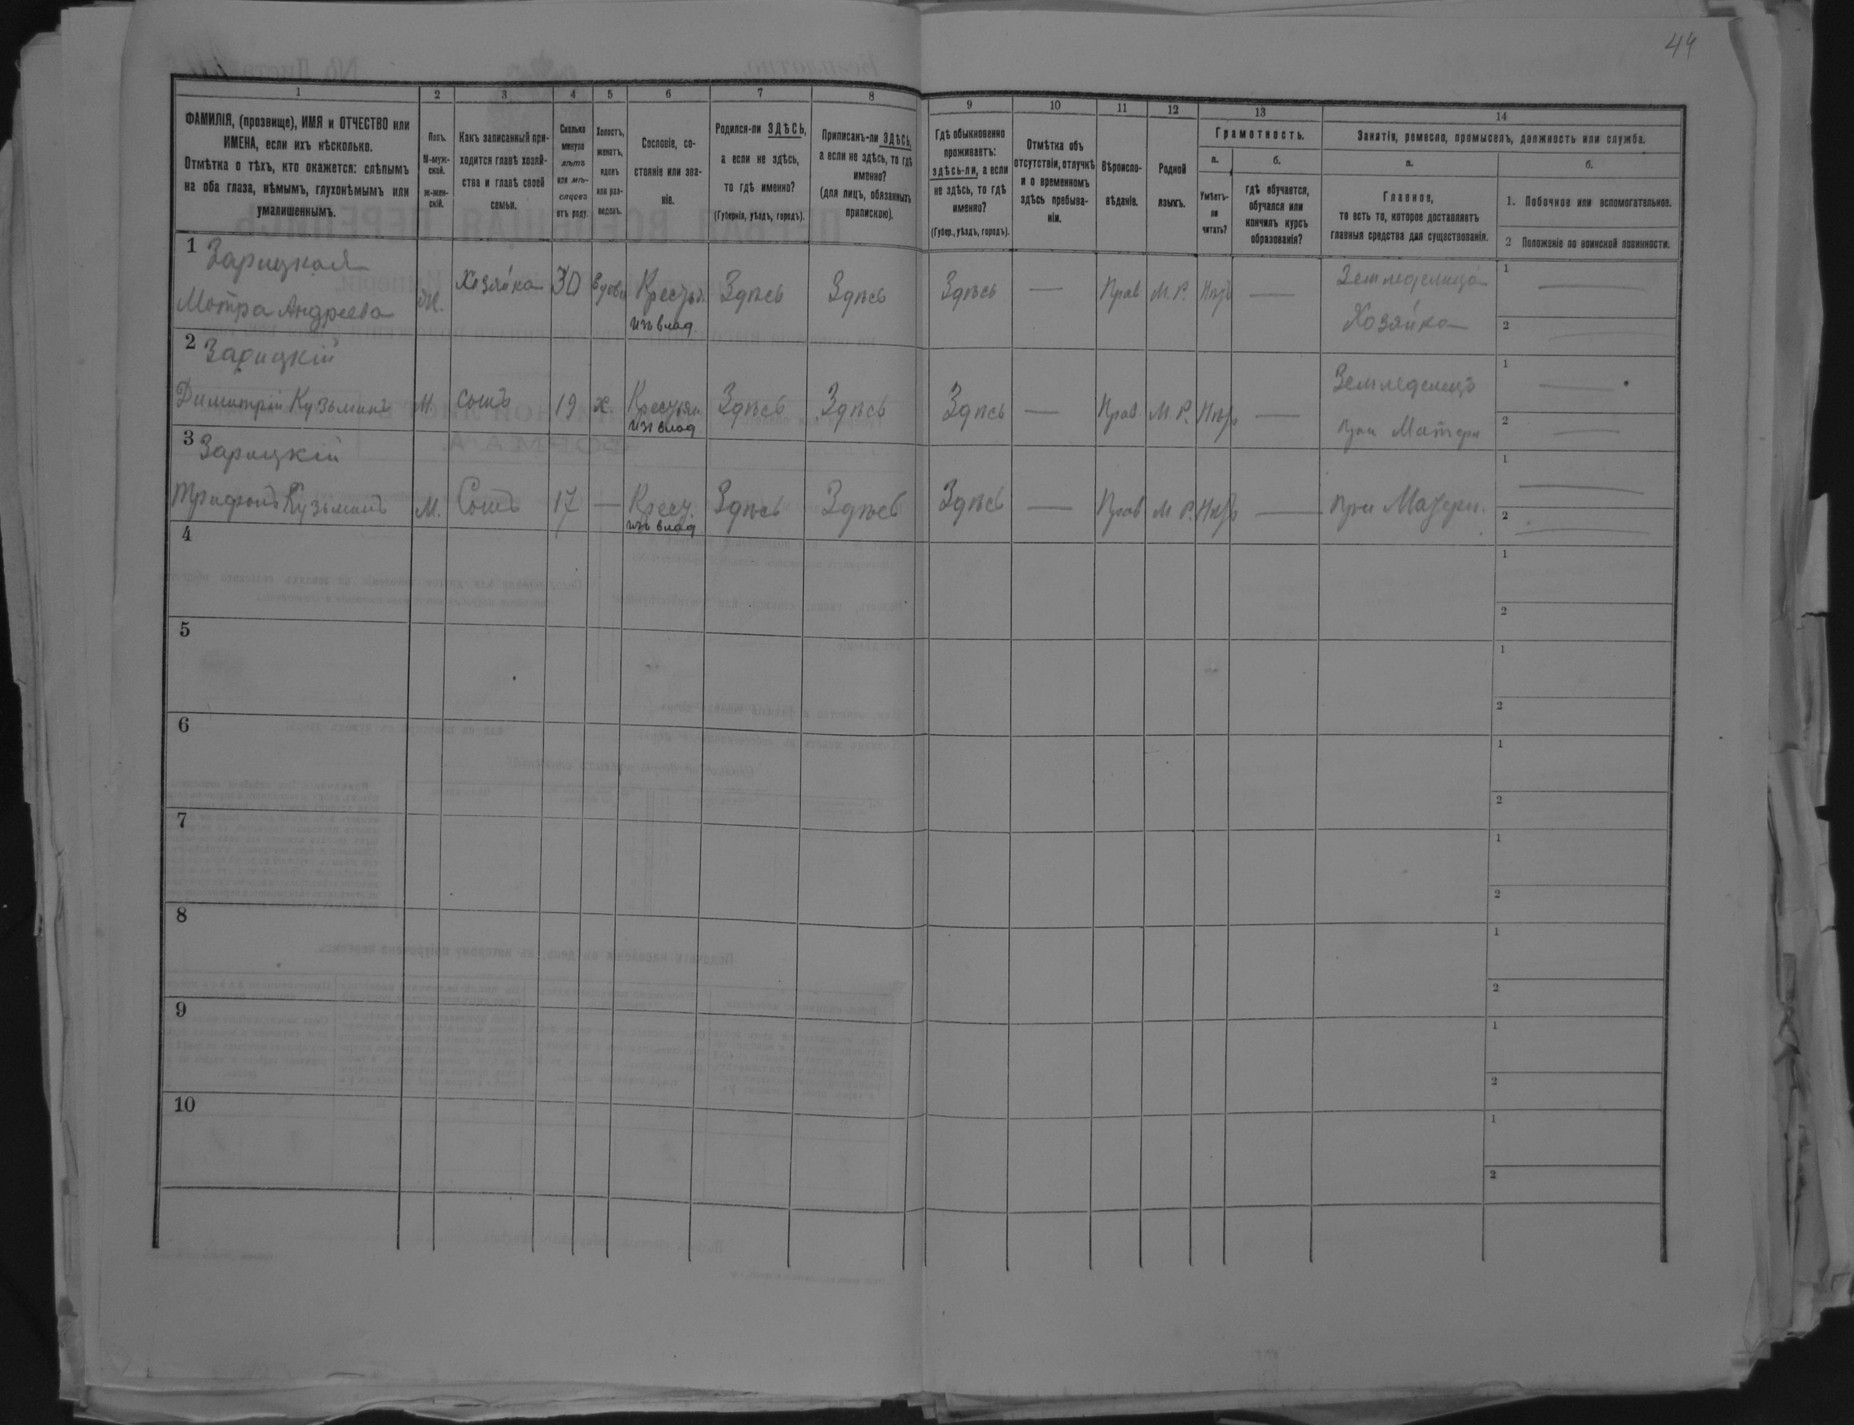 44
1 2 3 4 5 6 7 8 9 10 11 12 13 14
ФАМИЛІЯ, (прозвище), ИМЯ и ОТЧЕСТВО или
ИМЕНА, если ихъ нѣсколько.
Отмѣтка о тѣхъ, кто окажется: слѣпымъ
на оба глаза, нѣмымъ, глухонѣмымъ или
умалишеннымъ.
Полъ.
М-муж-
ской.
ж-жен-
скій.
Какъ записанный при-
ходится главѣ хозяй-
ства и главѣ своей
семьи.
Сколько
минуло
лѣтъ
или мѣ-
сяцевъ
отъ роду.
Холостъ,
женатъ,
вдовъ
или раз-
веденъ.
Сословіе, со-
стояніе или зва-
ніе.
Родился-ли ЗДѢСЬ,
а если не здѣсь,
то гдѣ именно?
(Губернія, уѣздъ, городъ).
Приписанъ-ли ЗДѢСЬ,
а если не здѣсь, то гдѣ
именно?
(для лицъ, обязанныхъ
припискою).
Гдѣ обыкновенно
проживаетъ:
здѣсь-ли, а если
не здѣсь, то гдѣ
именно?
(Губер., уѣздъ, городъ).
Отмѣтка объ
отсутствіи, отлучкѣ
и о временномъ
здѣсь пребыва-
ніи.
Вѣроиспо-
вѣданіе.
Родной
языкъ.
Грамотность.
а.
Умѣетъ-
ли
читать?
б.
гдѣ обучается,
обучался или
кончилъ курсъ
образованія?
Занятія, ремесло, промыселъ, должность или служба.
а.
Главное,
то есть то, которое доставляетъ
главныя средства для существованія.
б.
1. Побочное или вспомогательное.
2 Положеніе по воинской повинности.
1 Зарицкая
Мотра Андреева Ж. Хозяйка 30 вдова Крестьян. Здѣсь Здѣсь Здѣсь — Прав М. Р. Нѣтъ — Земледелица 1 —
изъ влад Хозяйка 2 —
2 Зарицкій
Димитрій Кузьминъ М. сынъ 19 х. Крестьян Здѣсь Здѣсь Здѣсь — Прав. М. Р. Нѣтъ — Земледелецъ 1 —
изъ влад при Матери 2 —
3 Зарицкій
Трифонъ Кузьминъ М. Сынъ 17 — Крест. Здѣсь Здѣсь Здѣсь — Прав М. Р. Нѣтъ — при Матери. 1 —
изъ влад 2 —
4 1
2
5 1
2
6 1
2
7 1
2
8 1
2
9 1
2
10 1
2